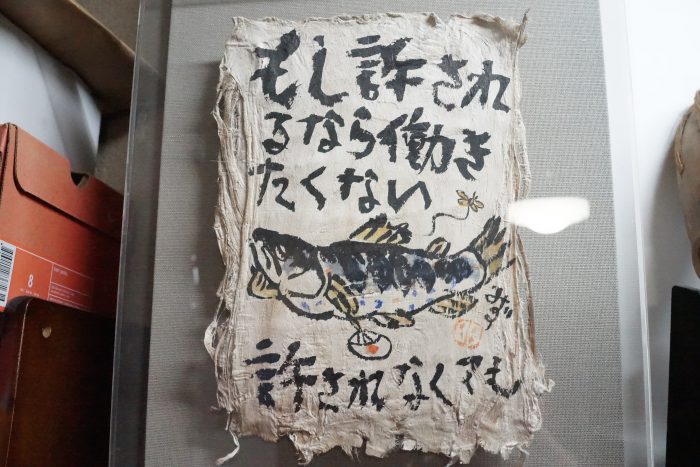 もし許され
るなら働き
たくない
みず
許されなくても
8